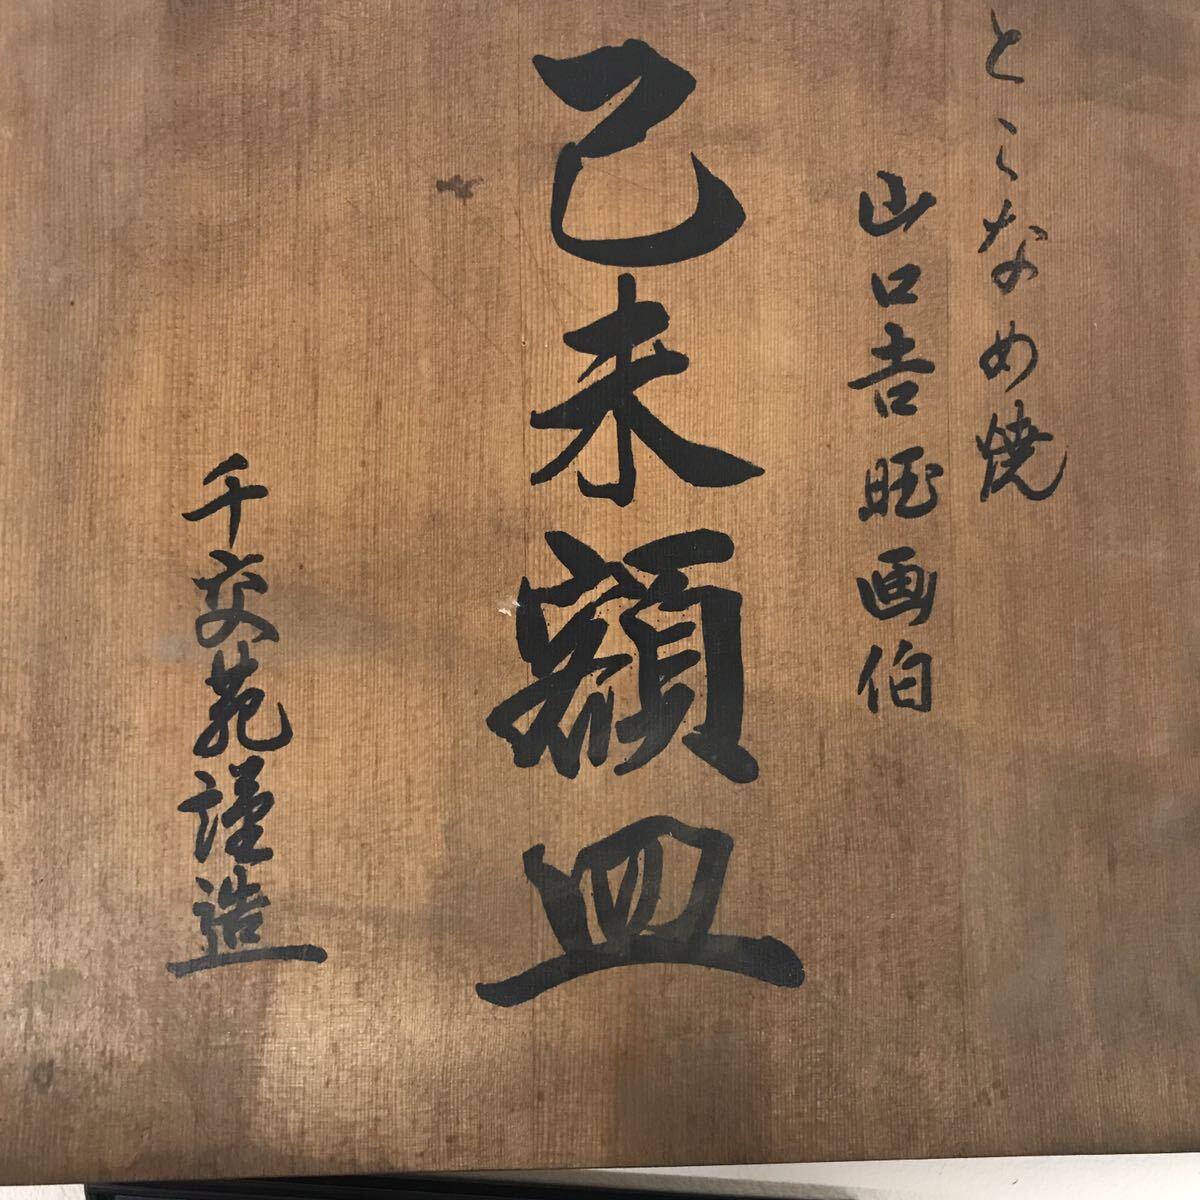 とこなめ焼
山口吉旺画伯
己未額皿
千交苑謹造